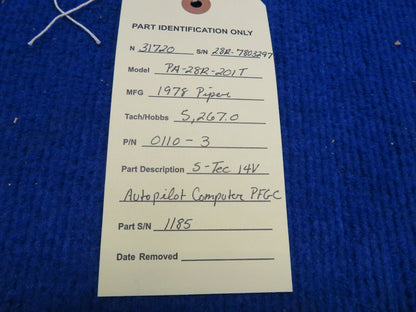 PART IDENTIFICATION ONLY
N 31720 S/N 28R-7803297
Model PA-28R-201T
MFG 1978 Piper
Tach/Hobbs 5,267.0
P/N 0110-3
Part Description S-Tec 14V
Autopilot Computer PFGC
Part S/N 1185
Date Removed